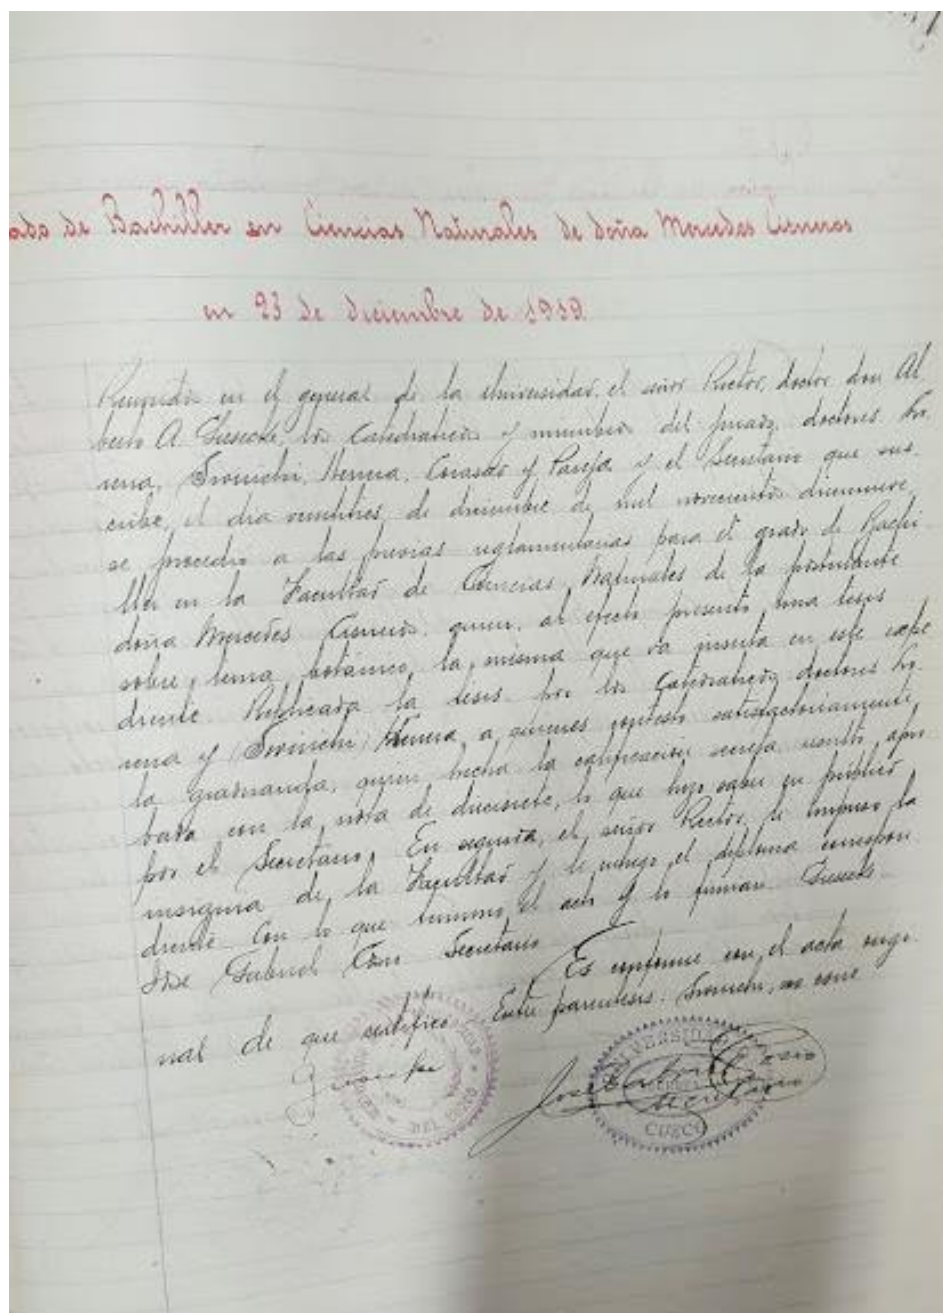 ado de Bachiller en Ciencias Naturales de doña Mercedes Cisneros
en 23 de diciembre de 1919.
Reunidos en el general de la Universidad, el señor Rector, doctor don Al
berto A. Giesecke, los Catedráticos y miembros del jurado, doctores Lo
rena, Herrera, Corazao y Pareja y el Secretario que sus
cribe, el día veintitres de diciembre de mil novecientos diecinueve,
se procedió a las previas reglamentarias para el grado de Bachi
ller en la Facultad de Ciencias Naturales de la postulante
doña Mercedes Cisneros, quien, al efecto presentó una tesis
sobre tema botánico, la misma que va inserta en este expe
diente. Replicada la tesis por los Catedráticos doctores Lo
rena y Herrera, a quienes contestó satisfactoriamente,
la graduanda, quien, hecha la calificación secreta resultó apro
bada con la nota de diecisiete, lo que hizo saber en público
por el Secretario. En seguida, el señor Rector, le impuso la
insignia de la Facultad y le entregó el diploma correspon
diente. Con lo que terminó el acto y lo firman. Giesecke
José Gabriel Cosio Secretario Es conforme con el acta origi
nal de que certifico. Entre paréntesis: no corre
Giesecke
José Gabriel Cosio
Secretario
CUZCO